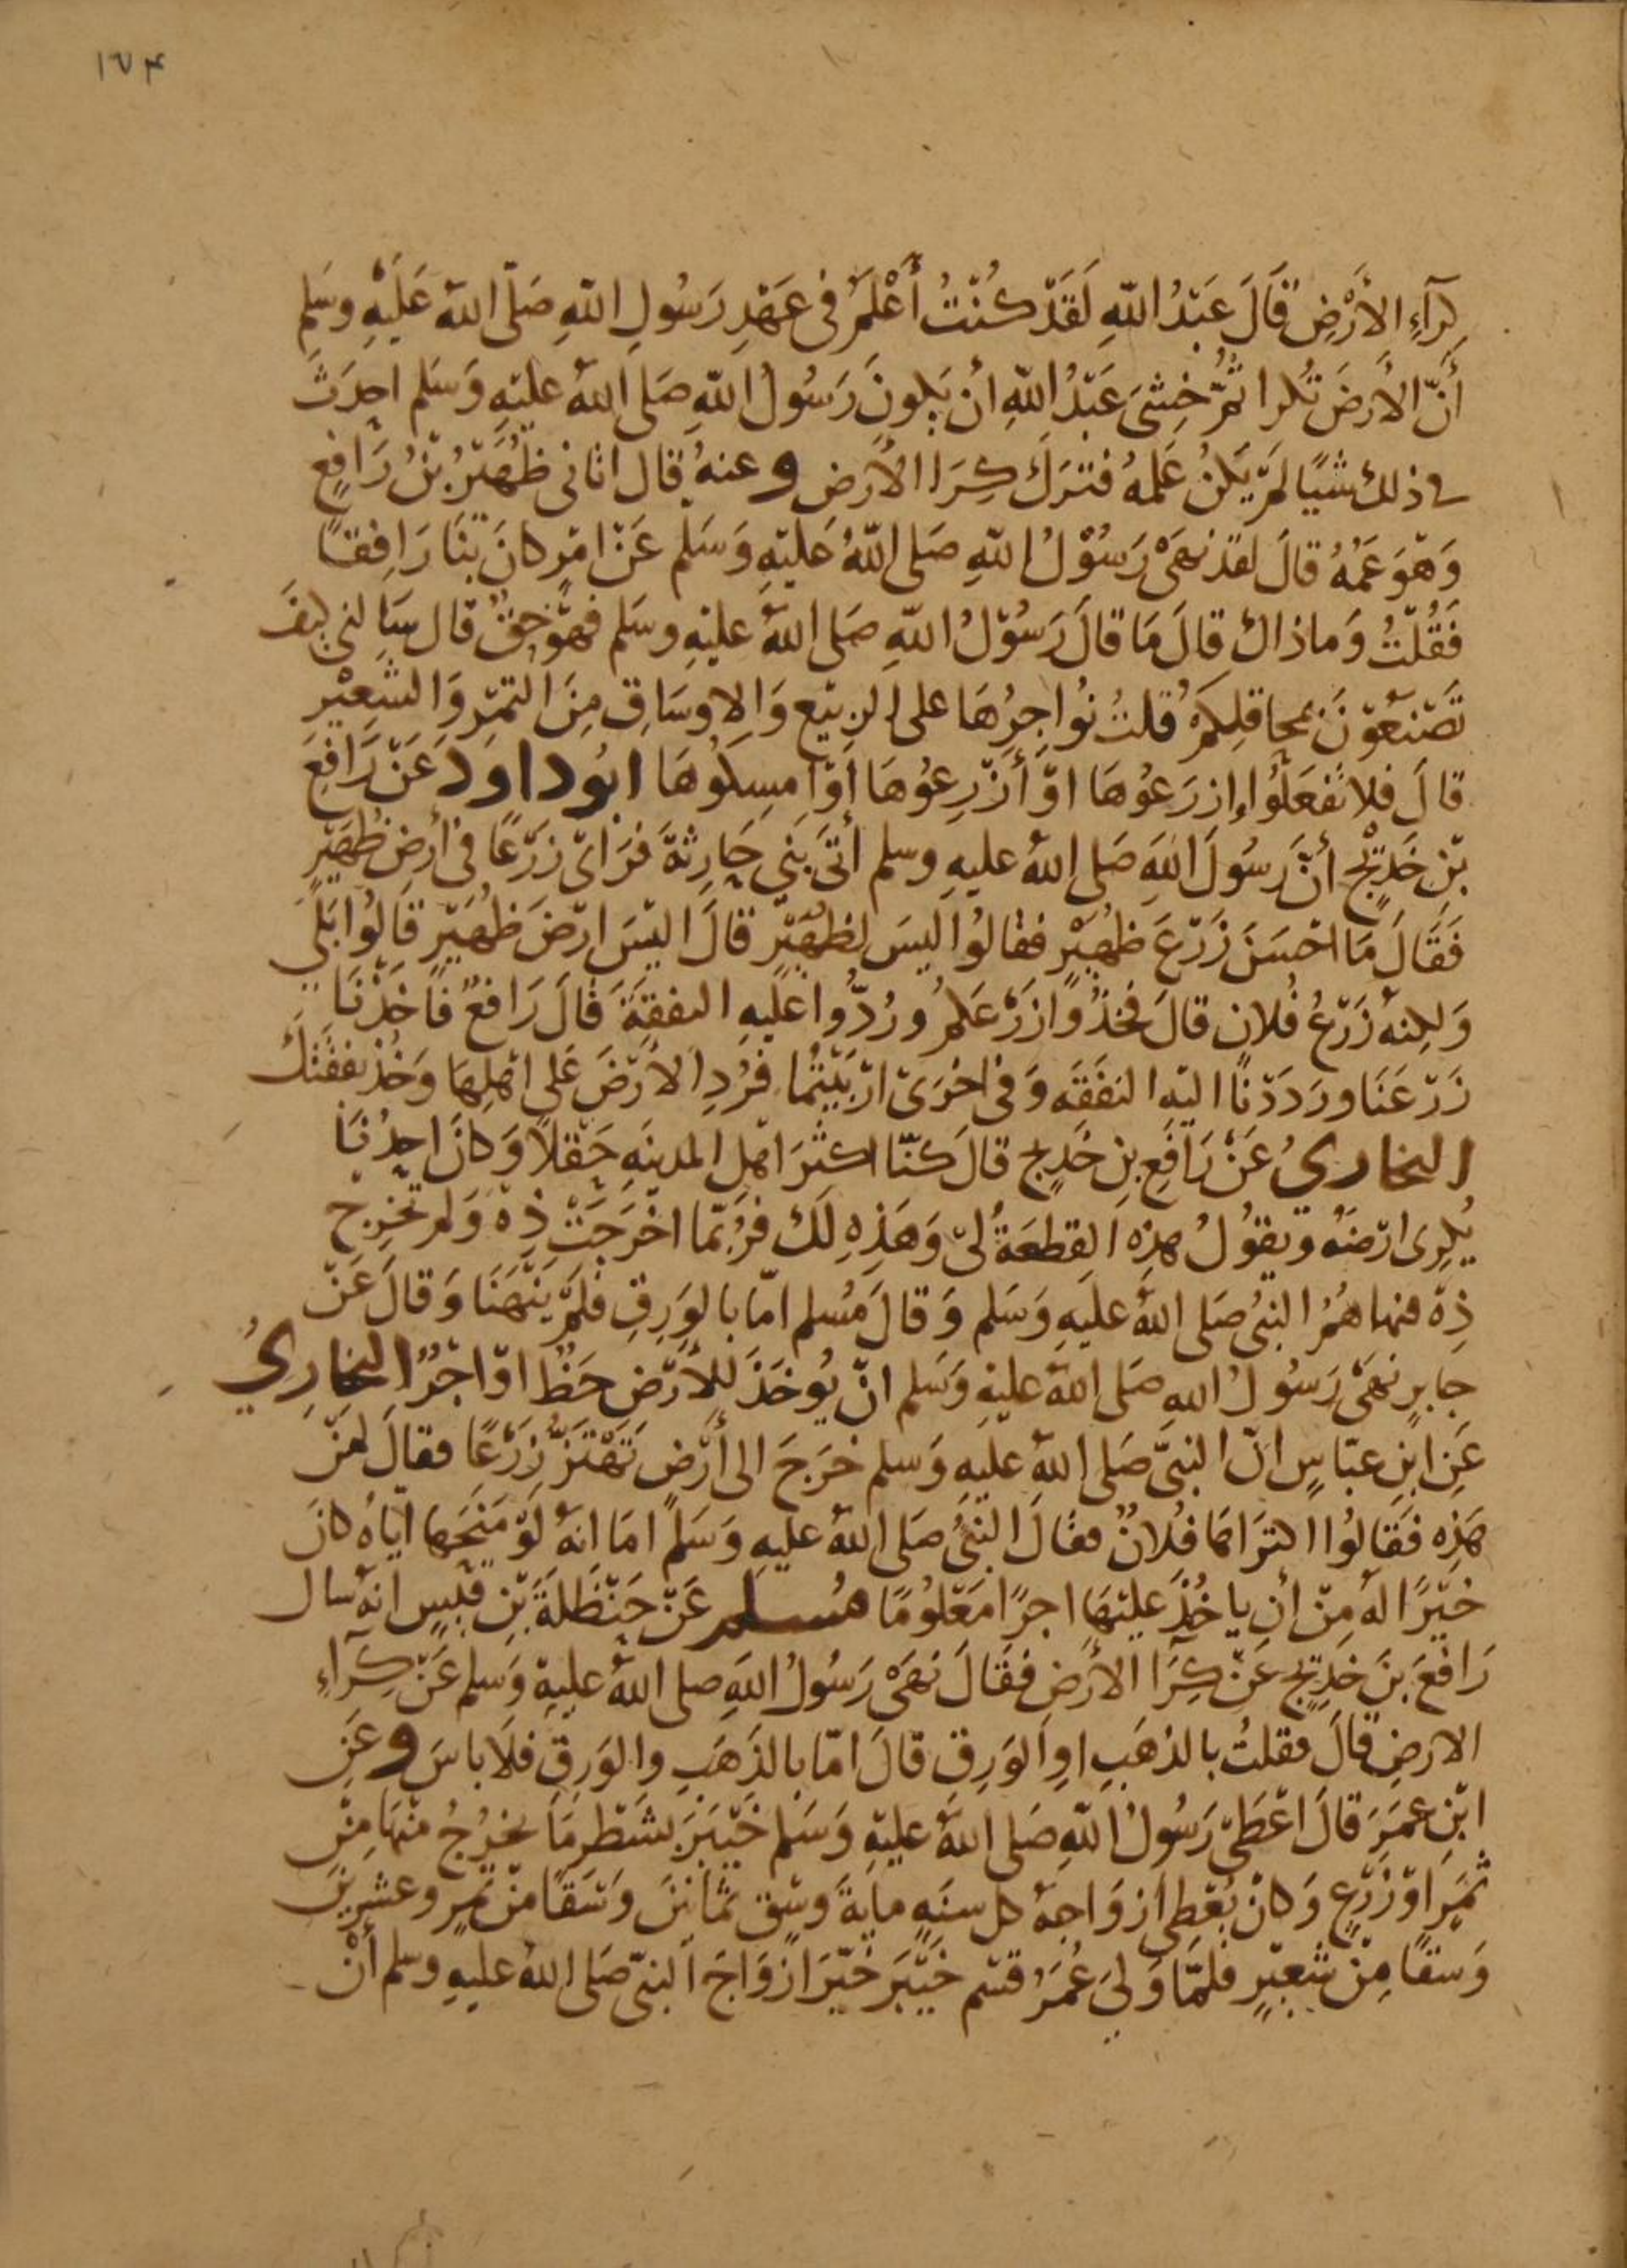 ١٧٤
كرآءِ الأَرْضِ قَالَ عَبْدُ اللهِ لَقَدْ كُنْتُ أَعْلَمُ فى عَهْدِ رَسُولِ اللهِ صَلّى اللهُ عَلَيْهِ وسَلم
أَنَّ الأَرضَ تُكرا ثُمَّ خَشِىَ عَبْدُ اللهِ أن يَكونَ رَسُولُ اللهِ صَلى اللهُ عليْهِ وَسَلم احدَثَ
فى ذلك شيًا لَمْ يَكنُ عَلمهُ فتَرَكَ كِرَا الأرض وعنهُ قال اتانى ظُهَيْرُ بْنُ رَافِعٍ
وَهْوَ عَمهُ قالَ لقد نهَىْ رَسُوْلُ اللهِ صَلى اللهُ عَليْهِ وَسَلم عَنْ امْرٍ كانَ بنَا رَافِقًا
فَقُلْتُ وَماذاك قالَ مَا قالَ رَسُوْلُ اللهِ صَلى اللهُ عليْهِ وسَلم فهْوَ حَقٌ قال سَالنى كيفَ
تَصْنعُوْنَ بمحاقِلِكمْ قلتُ نُواجِرُهَا على الربيْع وَالاوسَاق مِنَ التمْرِ وَالشَعِيْرِ
قالَ فلا تفعَلُوا إزرَعُوهَا اوْ أَزْرِعُوهَا أوْ امسِكوُهَا ابُو داودَ عَنْ رَافِعَ
بْنِ خَدِيْجٍ أنّ رَسُولَ اللهِ صَلى اللهُ عليهِ وسلم أتَى بَنِي حَارِثةَ فرَاىْ زَرْعًا فى أرضِ ظُهَيْرٍ
فَقَالَ مَا احْسَنَ زَرْعَ ظُهيْرٍ فقالُوا ليسَ لظُهَيْرٍ قالَ اليْسَ ارْضَ ظُهَيْرٍ قالُوا بَلَي
وَلكِنهُ زَرْعُ فُلانٍ قالَ فخذُوا زَرْعَكمُ ورُدُّوا عليْهِ النفقةَ قالَ رَافعٌ فاخَذْنَا
زَرْعَنَا ورَدَدْنَا اليْهِ النَفَقَه وَفى اخْرَىْ ارْبَيْتُما فرُدِ الأَرْضَ عَلى اهْلِهَا وَخُذْ نفقَتَكَ
البخاريُ عَنْ رَافعِ بنِ خَدِيج قالَ كنّا اكثرَ اهْلِ المدينهِ حَقْلاً وَكانَ احدُنَا
يُكرِى ارْضَهُ ويقوُلُ هذِهِ القِطعَةُ لىْ وَهَذِهِ لكَ فرُبّمَا اخْرَجَتْ ذِهْ وَلم تخرِجْ
ذِهْ فنهاهُمُ النبىُ صَلى اللهُ عليهِ وَسَلم وَقالَ مُسلم امّا بالوَرِقِ فلمْ يَنْهَنَا وَقالَ عَنْ
جابرٍ نهَىْ رَسُولُ اللهِ صَلى اللهُ عليْهِ وَسَلم انّ يُوخَذَ للأرْضِ حَظٌ اوْ اجْرٌ البخَارِيُ
عَنِ ابنِ عبّاسٍ انّ النبىَّ صَلى اللهُ عليهِ وَسلم خرَجَ الى أَرْضٍ تَهْتَزُّ زَرْعًا فقالَ لمَنْ
هَذِهِ فَقالُوا اكترَاهَا فُلانٌ فقالَ النبىُ صَلى اللهُ عليهِ وَسَلم امَا انهُ لَوْ مَنَحَها ايّاهُ كانَ
خَيْرًا لهُ مِنْ أن ياخُذَ عليْهَا اجرًا مَعْلوُمًا مُسلم عَنْ حَنْظَلةَ بْنِ قيسٍ انهُ سال
رَافعَ بنَ خدِيْجٍ عَنْ كِرَا الأرضِ فقَالَ نَهَىْ رَسُولُ اللهِ صلى اللهُ عليهِ وَسلم عَنْ كِرَآءِ
الارضِ قالَ فقلتُ بالذهَبِ اوِ الوَرِقِ قالَ امّا بالذَهَبِ والوَرِقِ فلا باسَ وعَنِ
ابْنِ عمَرَ قالَ اعْطَىْ رَسُولُ اللهِ صَلى اللهُ عليْهِ وَسَلم خَيْبَرَ بشَطْرِ مَا يخرُجُ منْهَا مِنْ
ثمَرٍ اوْ زَرْعٍ وَكانَ يُعْطِى ازوَاجهُ كل سنَهٍ مايةَ وَسْقٍ ثمَانينَ وَسَقًا منْ تمرٍ وعشرينَ
وَسقًا مِنْ شعيْرٍ فلمّا وَلىَ عُمَرُ قسم خَيْبَرَ خيّرَ ازوَاجَ النبىّ صَلى اللهُ عليهِ وسلم أنْ